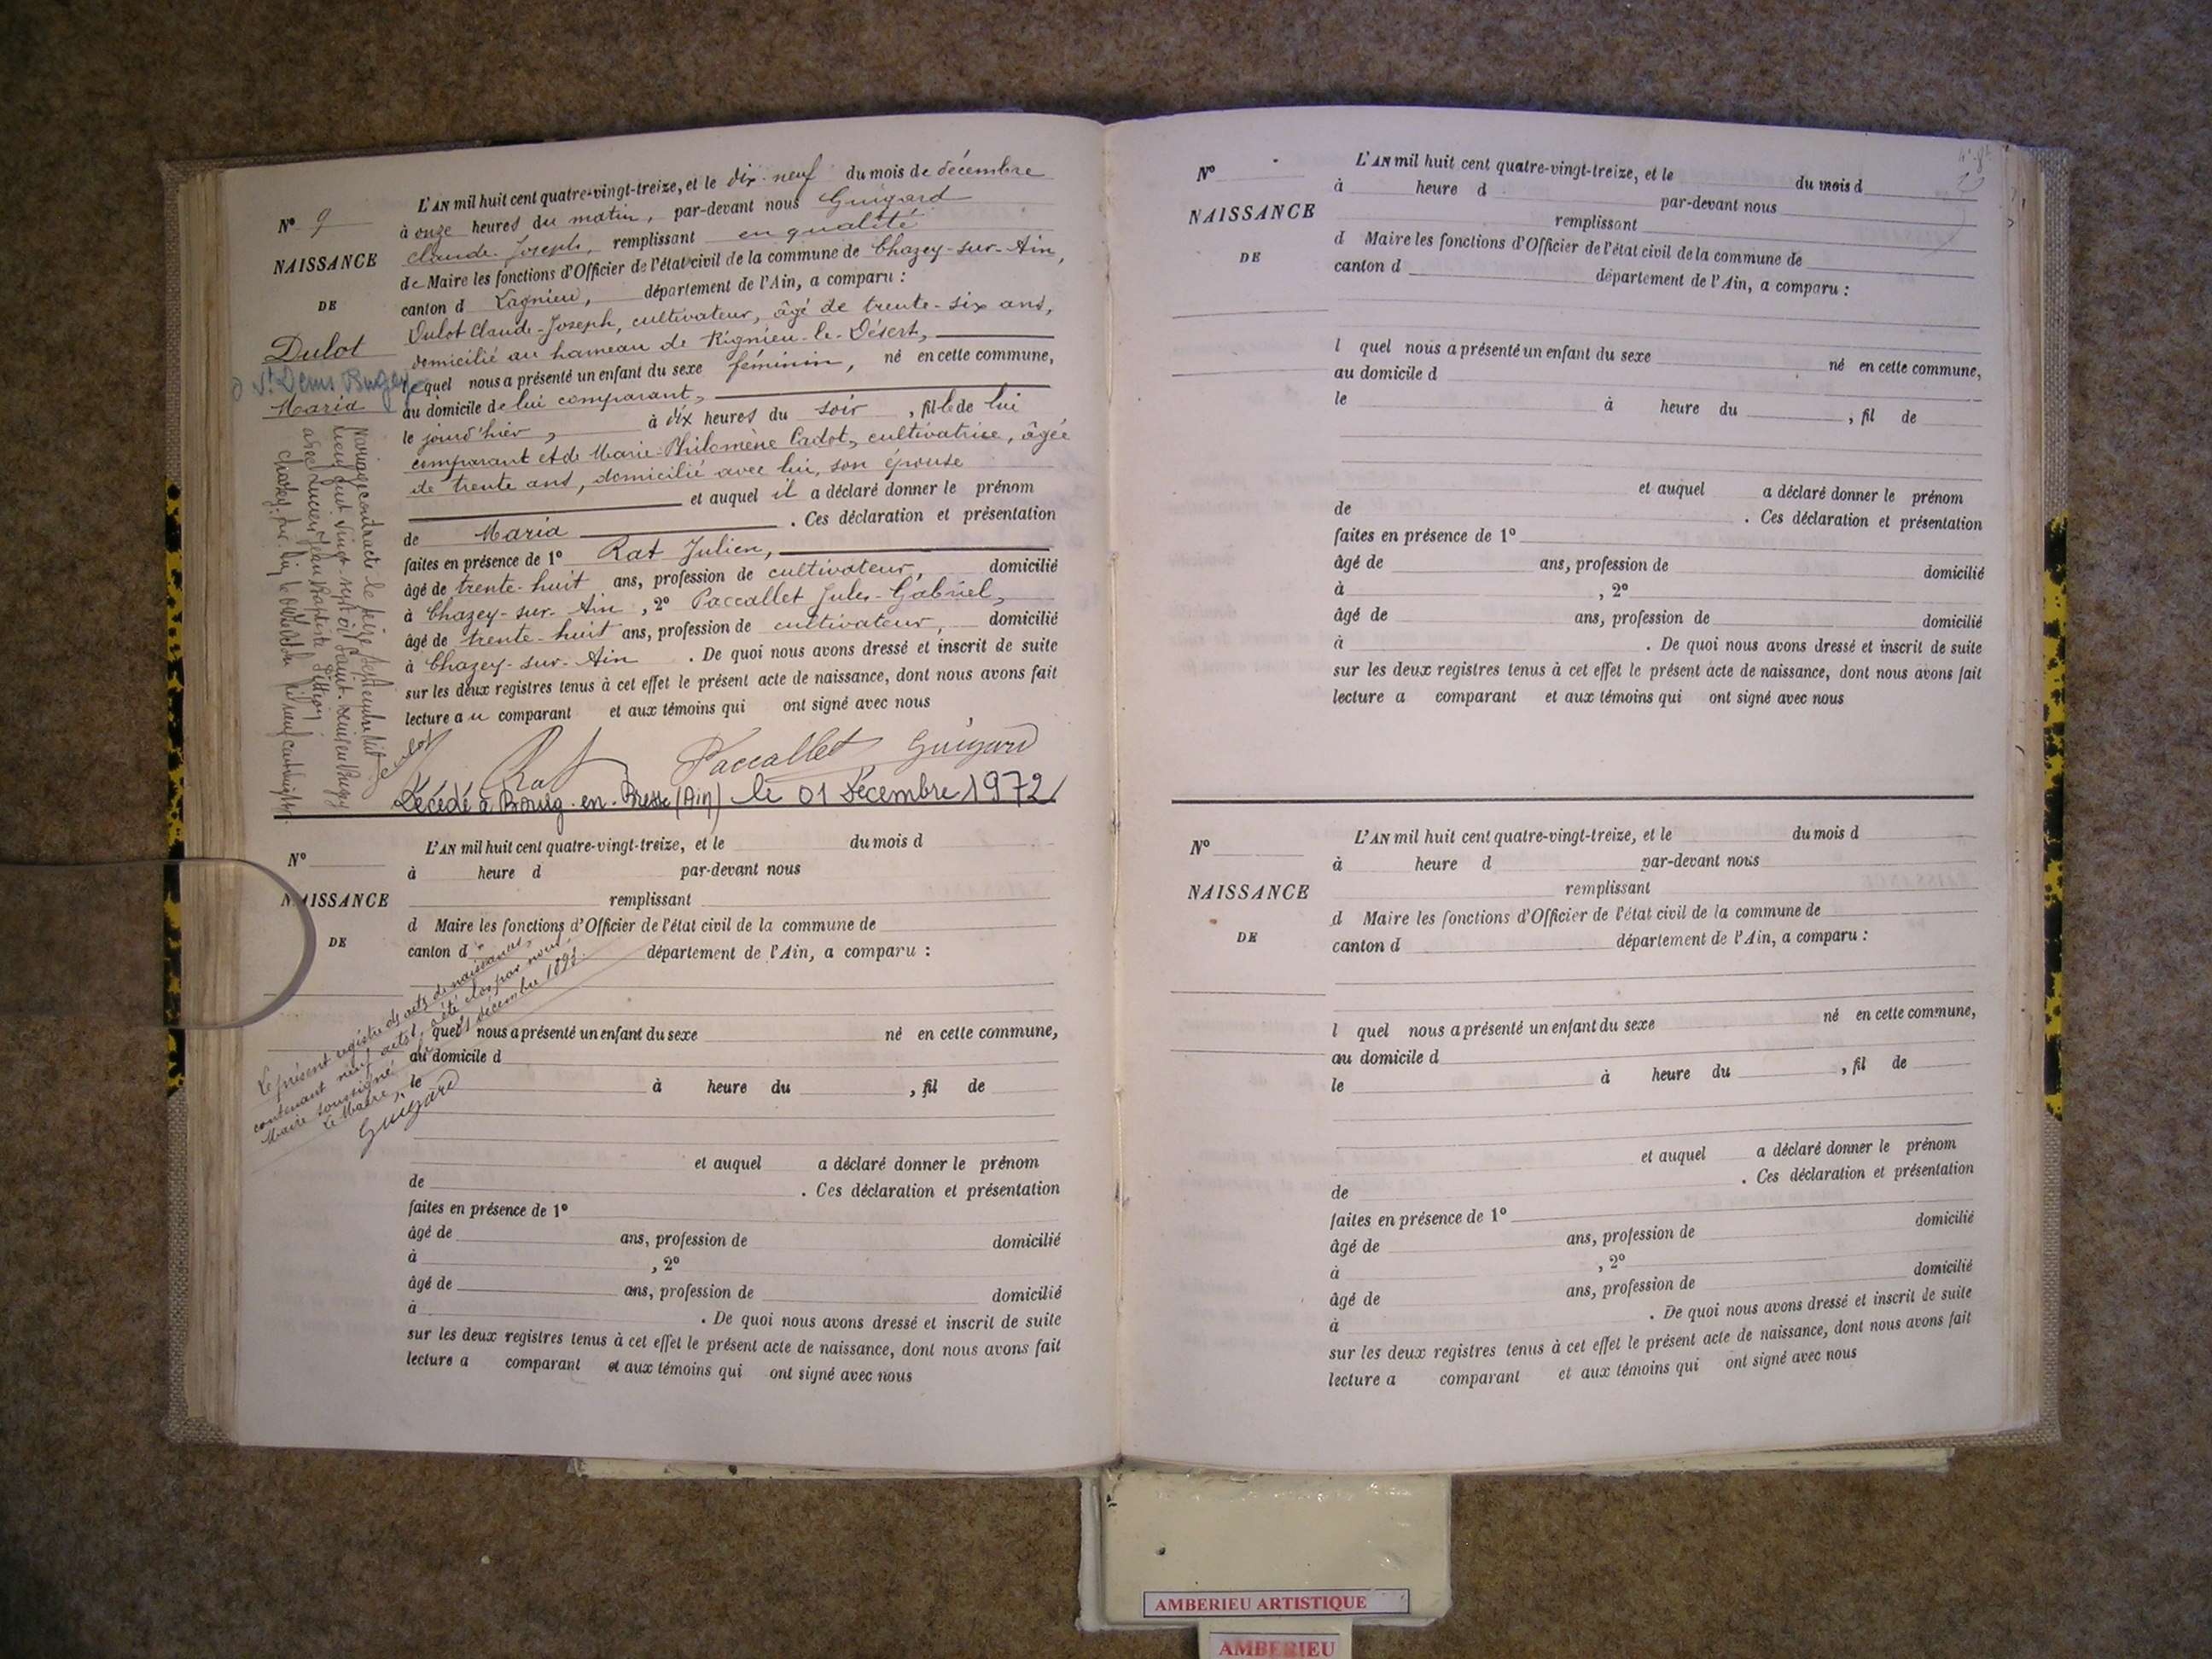 L'AN mil huit cent quatre-vingt-treize, et le dix-neuf du mois de décembre
à onze heures du matin, par-devant nous Guigard
Claude-Joseph, remplissant en qualité
de Maire les fonctions d'Officier de l'état civil de la commune de Chazey-sur-Ain,
canton d Lagnieu, département de l'Ain, a comparu :
Dulot Claude-Joseph, cultivateur, âgé de trente-six ans,
domicilié au hameau de Rignieu-le-Désert,
lequel nous a présenté un enfant du sexe féminin, né en cette commune,
au domicile de lui comparant,
le jour d'hier, à dix heures du soir, fille de lui
comparant et de Marie-Philomène Cadot, cultivatrice, âgée
de trente ans, domicilié avec lui, son épouse
et auquel il a déclaré donner le prénom
de Maria . Ces déclaration et présentation
faites en présence de 1º Rat Julien,
âgé de trente-huit ans, profession de cultivateur, domicilié
à Chazey-sur-Ain, 2º Paccallet Jules-Gabriel,
âgé de trente-huit ans, profession de cultivateur, domicilié
à Chazey-sur-Ain . De quoi nous avons dressé et inscrit de suite
sur les deux registres tenus à cet effet le présent acte de naissance, dont nous avons fait
lecture au comparant et aux témoins qui ont signé avec nous
Rat Paccallet Guigard
Décédé à Bourg-en-Bresse (Ain) le 01 Décembre 1972
Nº 9
NAISSANCE
DE
Dulot
St Denis Bugey
Maria
Mariage contracté le seize septembre mil
neuf cent vingt-sept à Saint-Denis en Bugey
avec Lucien Jean Baptiste
Chazey-sur-Ain le
Nº
NAISSANCE
DE
L'AN mil huit cent quatre-vingt-treize, et le du mois d
à heure d par-devant nous
remplissant
d Maire les fonctions d'Officier de l'état civil de la commune de
canton d département de l'Ain, a comparu :
quel nous a présenté un enfant du sexe né en cette commune,
au domicile d
le à heure du , fil de
et auquel a déclaré donner le prénom
de . Ces déclaration et présentation
faites en présence de 1º
âgé de ans, profession de domicilié
à , 2º
âgé de ans, profession de domicilié
à . De quoi nous avons dressé et inscrit de suite
sur les deux registres tenus à cet effet le présent acte de naissance, dont nous avons fait
lecture a comparant et aux témoins qui ont signé avec nous
Le présent registre des actes de naissances,
contenant neuf actes, a été clos par nous,
Maire soussigné le 31 décembre 1893.
Le Maire,
Guigard
Nº
NAISSANCE
DE
L'AN mil huit cent quatre-vingt-treize, et le du mois d
à heure d par-devant nous
remplissant
d Maire les fonctions d'Officier de l'état civil de la commune de
canton d département de l'Ain, a comparu :
l quel nous a présenté un enfant du sexe né en cette commune,
au domicile d
le à heure du , fil de
et auquel a déclaré donner le prénom
de . Ces déclaration et présentation
faites en présence de 1º
âgé de ans, profession de domicilié
à , 2º
âgé de ans, profession de domicilié
à . De quoi nous avons dressé et inscrit de suite
sur les deux registres tenus à cet effet le présent acte de naissance, dont nous avons fait
lecture a comparant et aux témoins qui ont signé avec nous
Nº
NAISSANCE
DE
L'AN mil huit cent quatre-vingt-treize, et le du mois d
à heure d par-devant nous
remplissant
d Maire les fonctions d'Officier de l'état civil de la commune de
canton d département de l'Ain, a comparu :
l quel nous a présenté un enfant du sexe né en cette commune,
au domicile d
le à heure du , fil de
et auquel a déclaré donner le prénom
de . Ces déclaration et présentation
faites en présence de 1º
âgé de ans, profession de domicilié
à , 2º
âgé de ans, profession de domicilié
à . De quoi nous avons dressé et inscrit de suite
sur les deux registres tenus à cet effet le présent acte de naissance, dont nous avons fait
lecture a comparant et aux témoins qui ont signé avec nous
AMBERIEU ARTISTIQUE
AMBERIEU